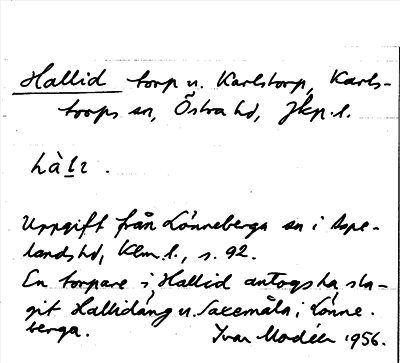 Hallid torp u. Karlstorp, Karls-
torps sn, Östra hd, Jkp. l.
Uppgift från Lönneberga sn i Aspe-
lands hd, Klm. l., s. 92.
En torpare i Hallid antogs ha sla-
git Hallidäng u. Saxemåla i Lönne-
berga. Ivar Modéer 1956.